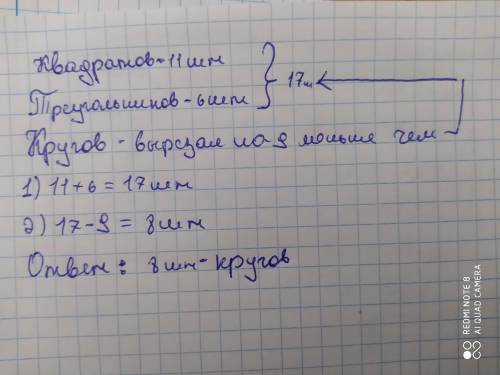 Квадратов - 11 шт
Треугольников - 6 шт } 17 шт
Кругов - вырезал на 9 меньше чем
1) 11+6 = 17 шт
2) 17-9 = 8 шт
Ответ: 8 шт - кругов
REDMI NOTE 8
AI QUAD CAMERA